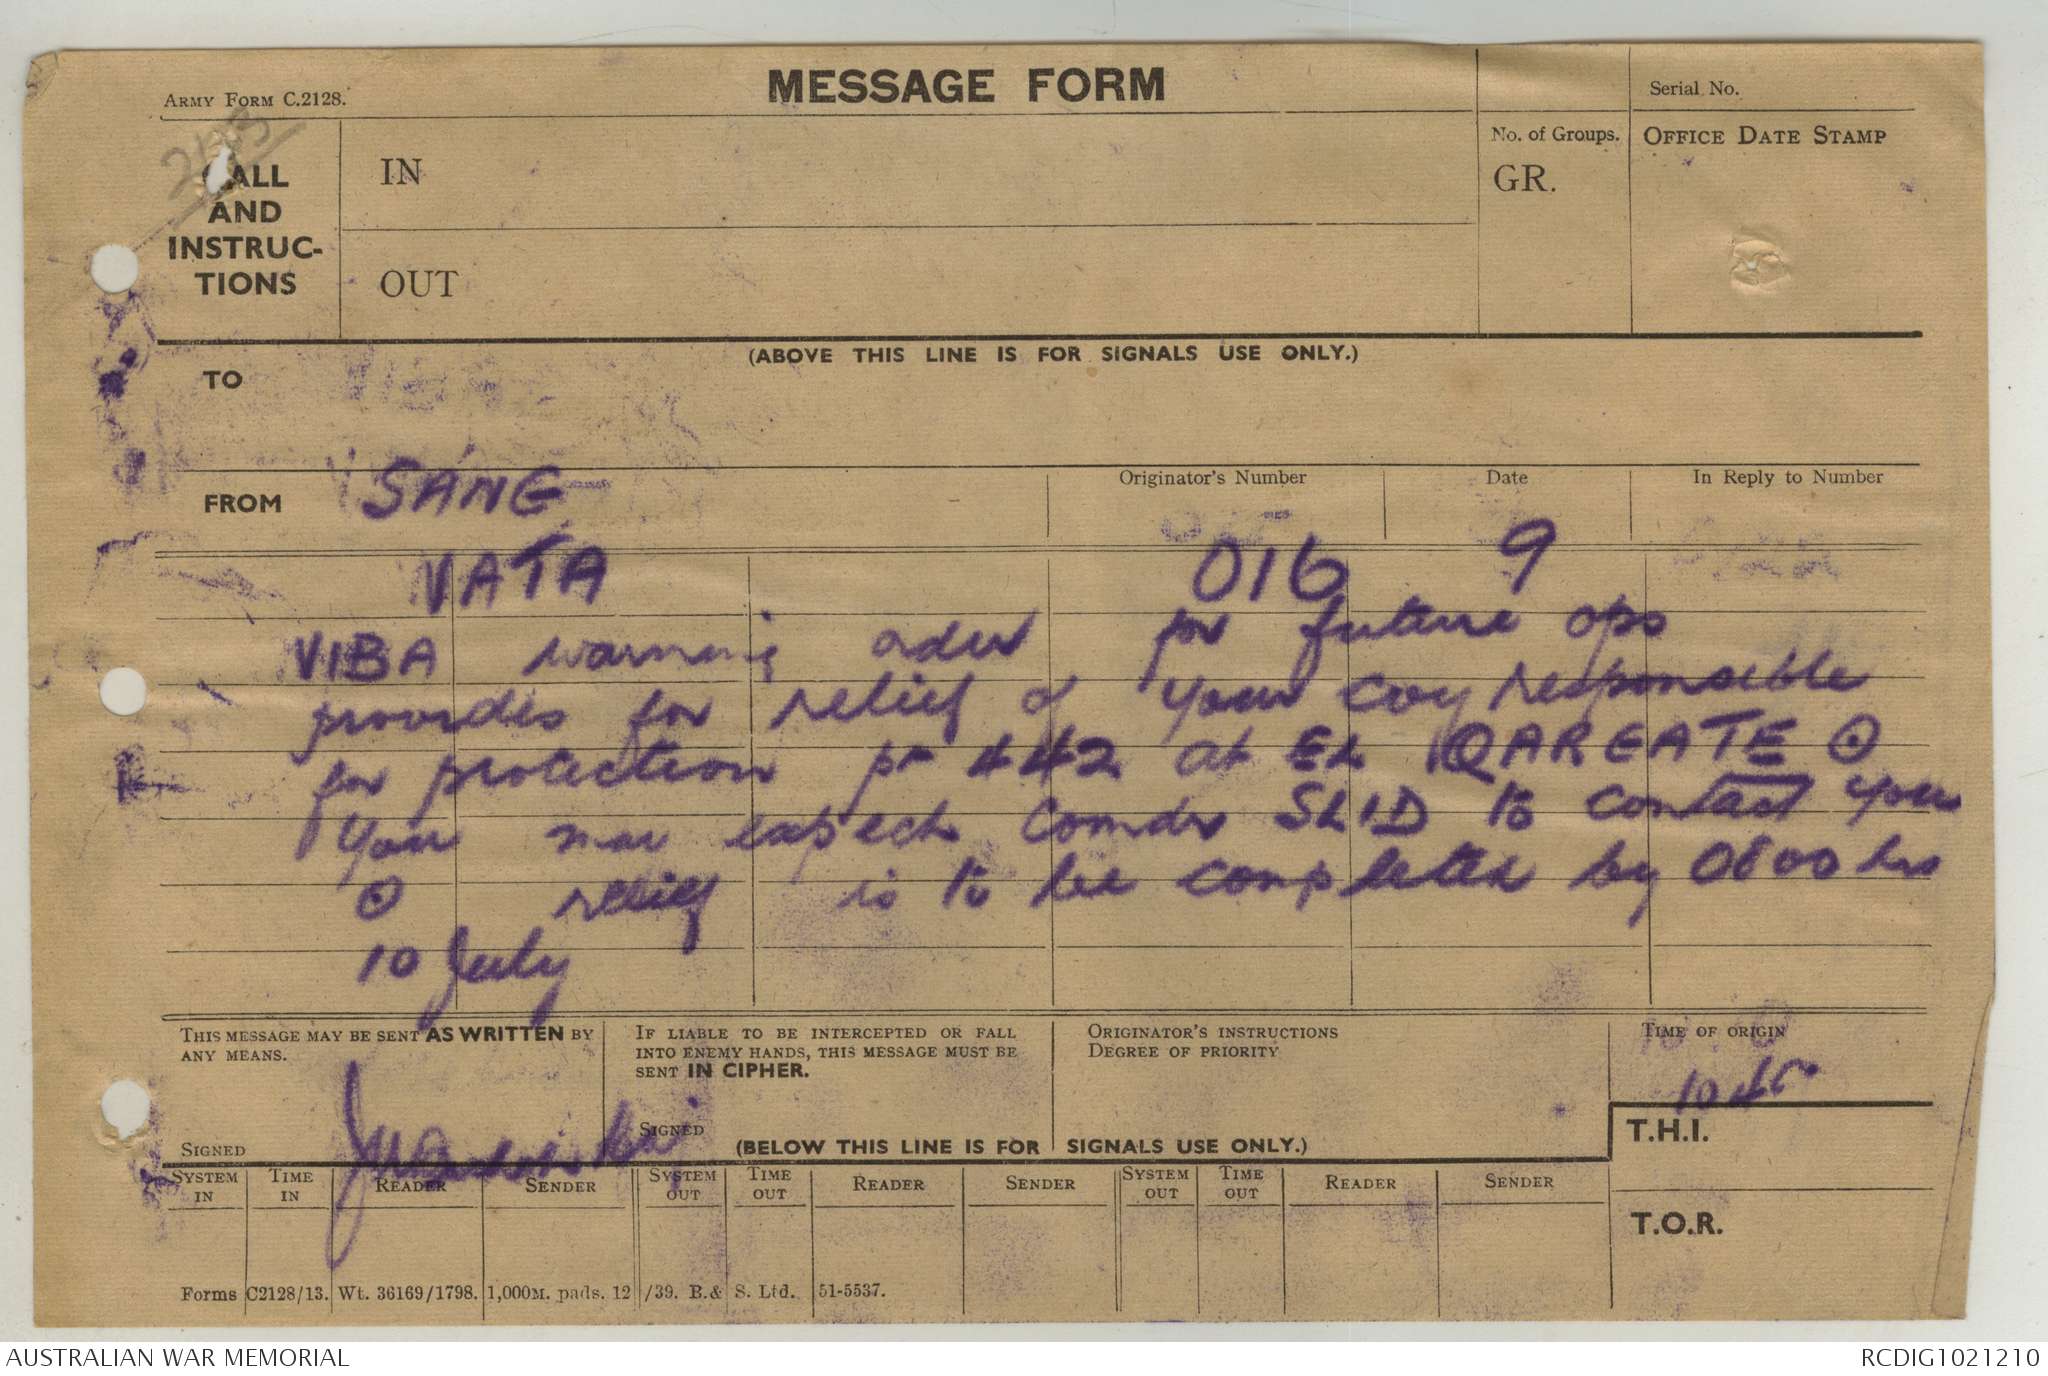 ARMY FORM C.2128.
MESSAGE FORM
Serial No.
CALL AND INSTRUC-TIONS
IN
OUT
No. of Groups.
GR.
OFFICE DATE STAMP
(ABOVE THIS LINE IS FOR SIGNALS USE ONLY.)
TO
SANG
FROM
Originator's Number
Date
In Reply to Number
VATA 016 9
VIBA warning order for future ops
provides for relief of your coy responsible
for protection pt 442 at EL QAREATE ⊙
You may expect Comdr SLID to contact you
⊙ relief is to be completed by 0800 hrs
10 July
THIS MESSAGE MAY BE SENT AS WRITTEN BY ANY MEANS.
IF LIABLE TO BE INTERCEPTED OR FALL INTO ENEMY HANDS, THIS MESSAGE MUST BE SENT IN CIPHER.
ORIGINATOR'S INSTRUCTIONS
DEGREE OF PRIORITY
TIME OF ORIGIN
1045
SIGNED
SIGNED
(BELOW THIS LINE IS FOR SIGNALS USE ONLY.)
T.H.I.
SYSTEM IN
TIME IN
READER
SENDER
SYSTEM OUT
TIME OUT
READER
SENDER
SYSTEM OUT
TIME OUT
READER
SENDER
T.O.R.
Forms C2128/13. Wt. 36169/1798. 1,000M. pads. 12/39. B.& S. Ltd. 51-5537.
AUSTRALIAN WAR MEMORIAL
RCDIG1021210